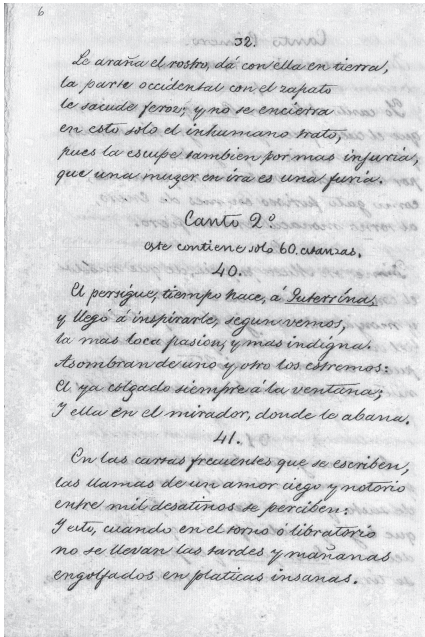 6
32.
Le araña el rostro, dá con ella en tierra,
la parte occidental con el zapato
le sacude feroz; y no se encierra
en esto solo el inhumano trato,
pues la escupe tambien por mas injuria,
que una muger en ira es una furia.
Canto 2º
este contiene solo 60. estanzas.
40.
El persigue, tiempo hace, á
y llegó á inspirarle, segun vemos,
la mas loca pasion, y mas indigna.
Asombran de uno y otro los estremos:
El ya colgado siempre á la ventana;
Y ella en el mirador, donde le abana.
41.
En las cartas frecuentes que se escriben,
las llamas de un amor ciego y notorio
entre mil desatinos se perciben:
Y esto, cuando en el torno ó libratorio
no se llevan las tardes y mañanas
engolfados en platicas insanas.